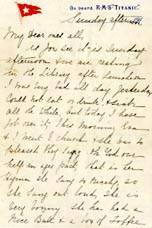 On board R.M.S. "TITANIC"
Sunday afternoon
My dear ones all,
As you see it is Sunday
afternoon & we are resting
in the library after luncheon
I was very bad all day yesterday
could not eat or drink & sick
all the while, but today I have
got over it. This morning Eva
& I went to church & she was so
pleased they sang Oh God our
help in ages past, that is her
Hymn she sang so nicely, so
she sang out loud, she is
very bonny. She has had a
nice Ball & a box of Toffee